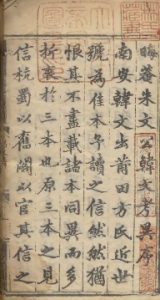 晦菴朱文公韓文考異序
南安韓文出莆田方氏近世
號為佳本予讀之信然然猶
恨其不盡載諸本同異而多
折衷於三本也原三本之見
信杭蜀以舊閣以官其信之